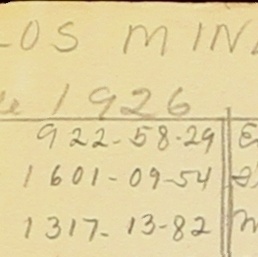 LOS MIN
1926
922-58-29
1601-09-54
1317-13-82